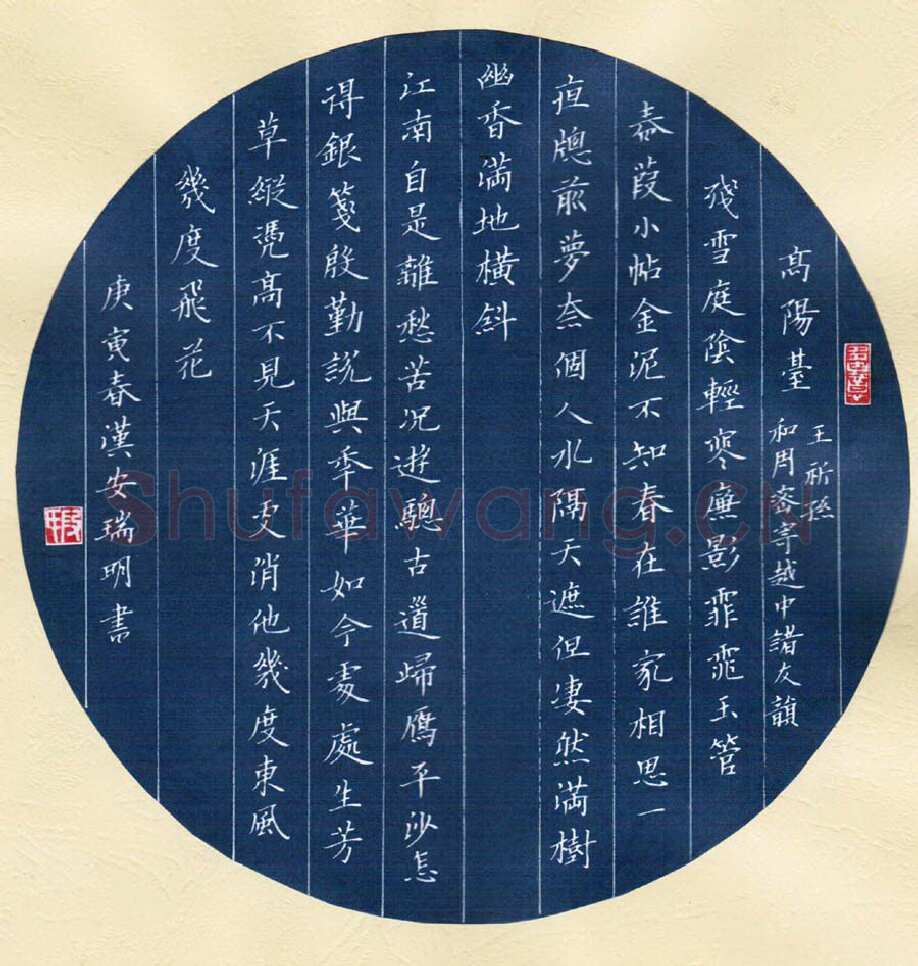 高陽臺
王祈孫
和周密寄越中諸友韻
殘雪庭陰輕寒廉影霏霏玉管
春葭小帖金泥不知春在誰家相思一
牕前夢奈個人水隔天遮但凄然滿樹
幽香滿地橫斜
江南自是離愁苦況遊驄古道歸鴈平沙怎
得銀箋殷勤說與年華如今處處生芳
草縱凴高不見天涯更消他幾度東風
幾度飛花
庚寅春漢安瑞明書
Shufawang.CN